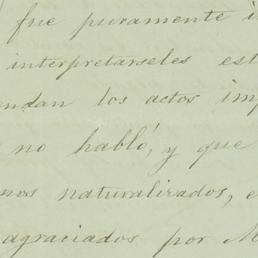 fue puramente i
interpretarseles est
endan los actos imp
no habló, y que
nos naturalizados, e
agraciados por M